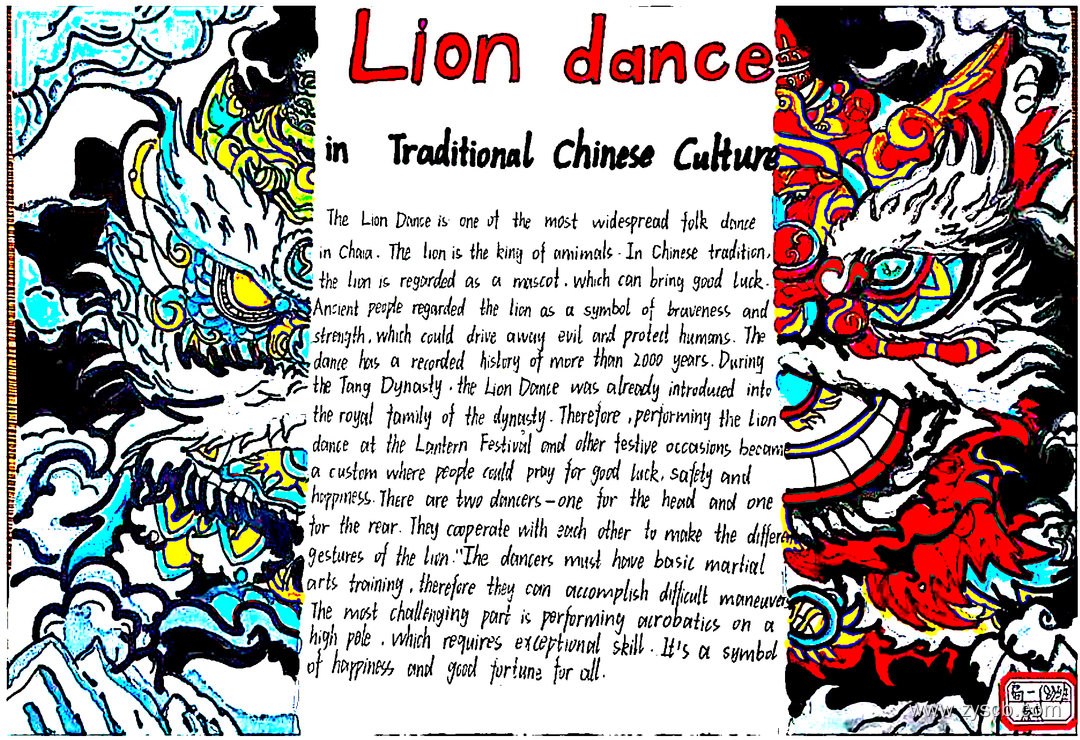 Lion dance
in Traditional Chinese Culture
The Lion Dance is one of the most widespread folk dance
in Chaia. The lion is the king of amimals. In Chinese tradition,
the lion is regarded as a mascot, which can bring good luck.
Ancient people regarded the lion as a symbol of braveness and
strength, which could drive away evil and protect humans. The
dance has a recorded history of more than 2000 years. During
the Tang Dynasty, the Lion Dance was already introduced into
the royal family of the dynasty. Therefore, performing the lion
dance at the Lantern Festival and other festive occasions became
a custom where people could pray for good luck, safety and
happiness. There are two dancers-one for the head and one
for the rear. They cooperate with each other to make the differen
gestures of the lion."The dancers must have basic martial
arts training, therefore they can accomplish difficult maneuvers
The most challenging part is performing acrobatics on a
high pole, which requires exceptional skill. It's a symbol
of happiness and good fortune for all.